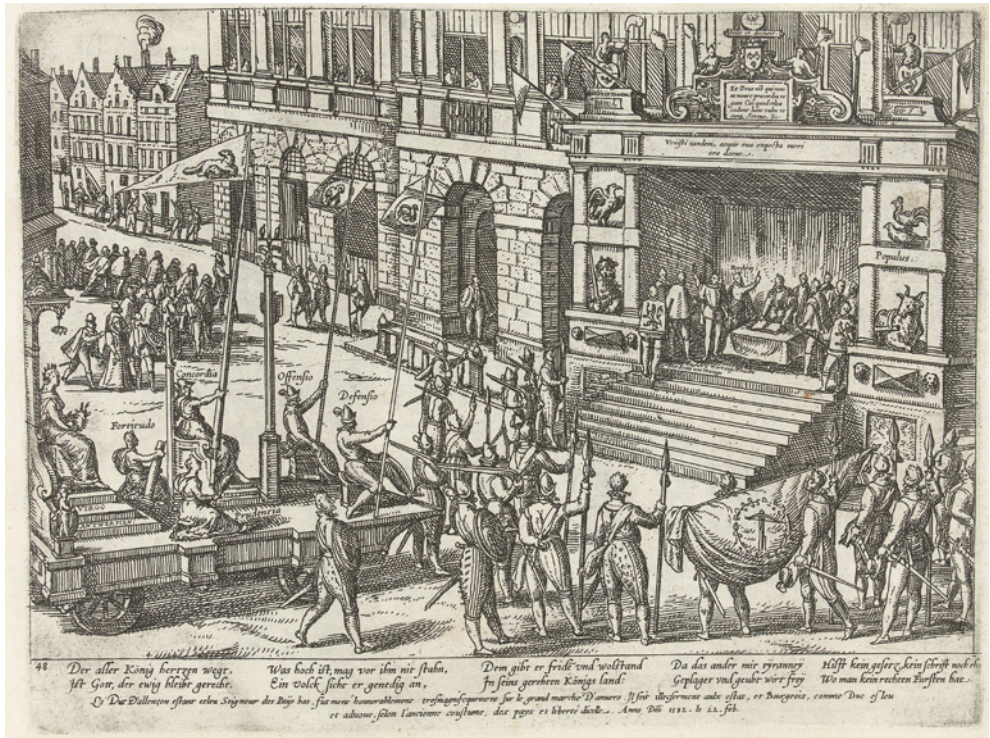 Venisti tandem,
Populus.
Concordia
Offensio
Defensio
Fortitudo
Prudencia
VIRGO
48
Der aller König hertzen wegt,
Ist Gott, der ewig bleibt gerecht.
Was hoch ist, mag vor ihm nit stahn,
Ein Volck sicht er genedig an,
Dem gibt er fridt vnd wolstand
In seins gerehten Königs land:
Da das ander mit tyranney
Geplaget vnd geubt wirt frey
Hilfft kein gesetz, kein schrifft noch
Wo man kein rechten Fursten hat.
Le Duc Dallençon estant esleu Seigneur des Pays bas, fut mene honorablement sur le grand marche D'anvers. Il feit illec serment aulx estas, et Bourgeois, comme Duc esleu
et advoue, selon l'ancienne coustume, des pays et liberté dicelle. Anno Dni 1582. le 22. feb.